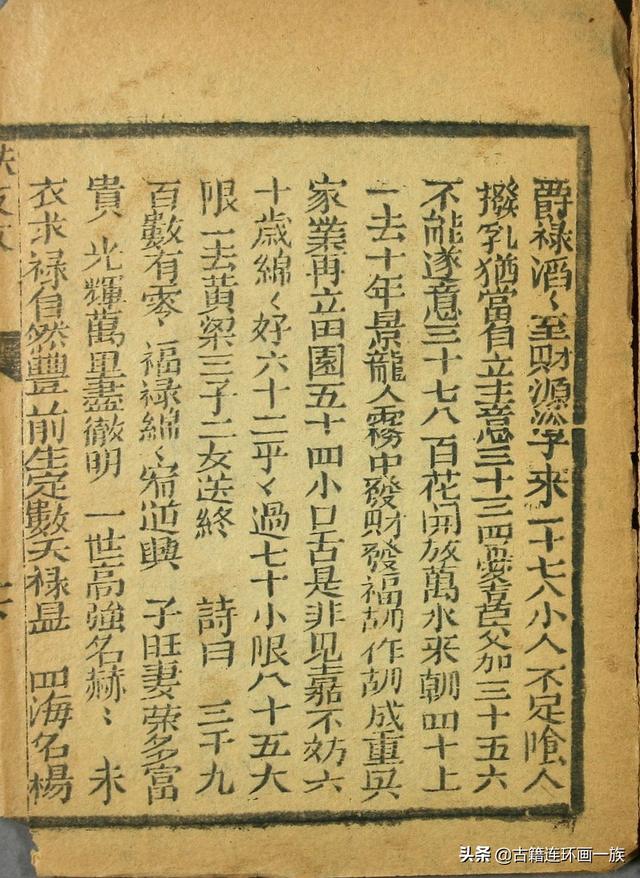 爵禄滔〻至財源滚子来二十七八小人不足陰人
撥乳猶當自立主意三十三四喜交加三十五六
不能遂意三十七八百花開放萬水来朝四十上
一去十年景龍入霧中發財發福胡作胡成重興
家業再立田園五十四小口舌是非见喜不妨六
十歲綿〻好六十二乎〻過七十小限八十五大
限一去黃梁三子二女送終 詩曰 三千九
百數有零〻福禄綿〻宛道興 子旺妻荣多富
貴 光輝萬里盡徹明 一世高強名赫〻 未
衣求禄自然豐前生定數天禄显 四海名楊
头条 @古籍连环画一族